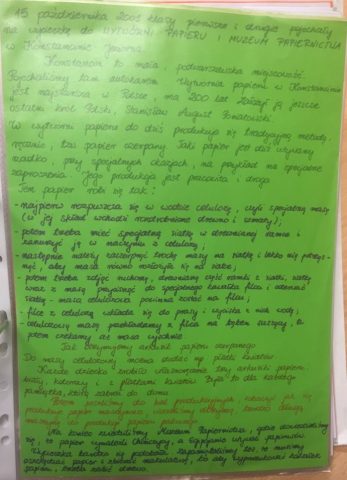 15 października 2009 klasy pierwsze i drugie pojechały
na wycieczkę do WYTWÓRNI PAPIERU I MUZEUM PAPIERNICTWA
w Konstancinie Jeziorna.
Konstancin to mała, podwarszawska miejscowość.
Pojechaliśmy tam autokarem. Wytwórnia papieru w Konstancinie
jest najstarsza w Polsce, ma 200 lat. Założył ją jeszcze
ostatni król Polski, Stanisław August Poniatowski.
W wytwórni papieru do dziś produkuje się tradycyjną metodą,
ręcznie, tzw. papier czerpany. Taki papier jest dziś używany
rzadko, przy specjalnych okazjach, na przykład na specjalne
zaproszenia. Jego produkcja jest pracowita i droga.
Ten papier robi się tak:
- najpierw rozpuszcza się w wodzie celulozę, czyli specjalną masę
(w jej skład wchodzi rozdrobnione drewno i szmaty),
- potem trzeba mieć specjalną siatkę w drewnianej ramce i
zanurzyć ją w naczyniu z celulozą,
- następnie należy zaczerpnąć trochę masy na siatkę i lekko nią
aby masa równo rozłożyła się na siatce,
- potem trzeba zdjąć ruchomą, drewnianą część ramki z siatki, siatkę
wraz z masą przycisnąć do specjalnego kawałka filcu i oderwać
siatkę - masa celulozowa powinna zostać na filcu,
- filc z celulozą wkłada się do prasy i wyciska z niej wodę,
- celulozową masę przekładamy z filcu na
potem czekamy aż masa wyschnie.
Tak otrzymujemy arkusz papieru czerpanego.
Do masy celulozowej można dodać np. płatki kwiatów.
Każde dziecko zrobiło własnoręcznie trzy arkusze papieru:
biały, kolorowy i z płatkami kwiatów. Była to dla każdego
pamiątka, którą zabrał do domu.
Potem poszliśmy do hal produkcyjnych, zobaczyć jak się
produkuje papier maszynowo, widzieliśmy olbrzymią,
maszynę do produkcji papieru
Na koniec zwiedziliśmy Muzeum Papiernictwa, gdzie dowiedzieliśmy
się, że papier wynaleźli Chińczycy, a Egipcjanie używali papirusu.
Wycieczka bardzo się podobała. Zapamiętaliśmy też, że musimy
oszczędzać papier i zbierać makulaturę, bo aby wyprodukować kawałek
papieru, trzeba zabić drzewo.